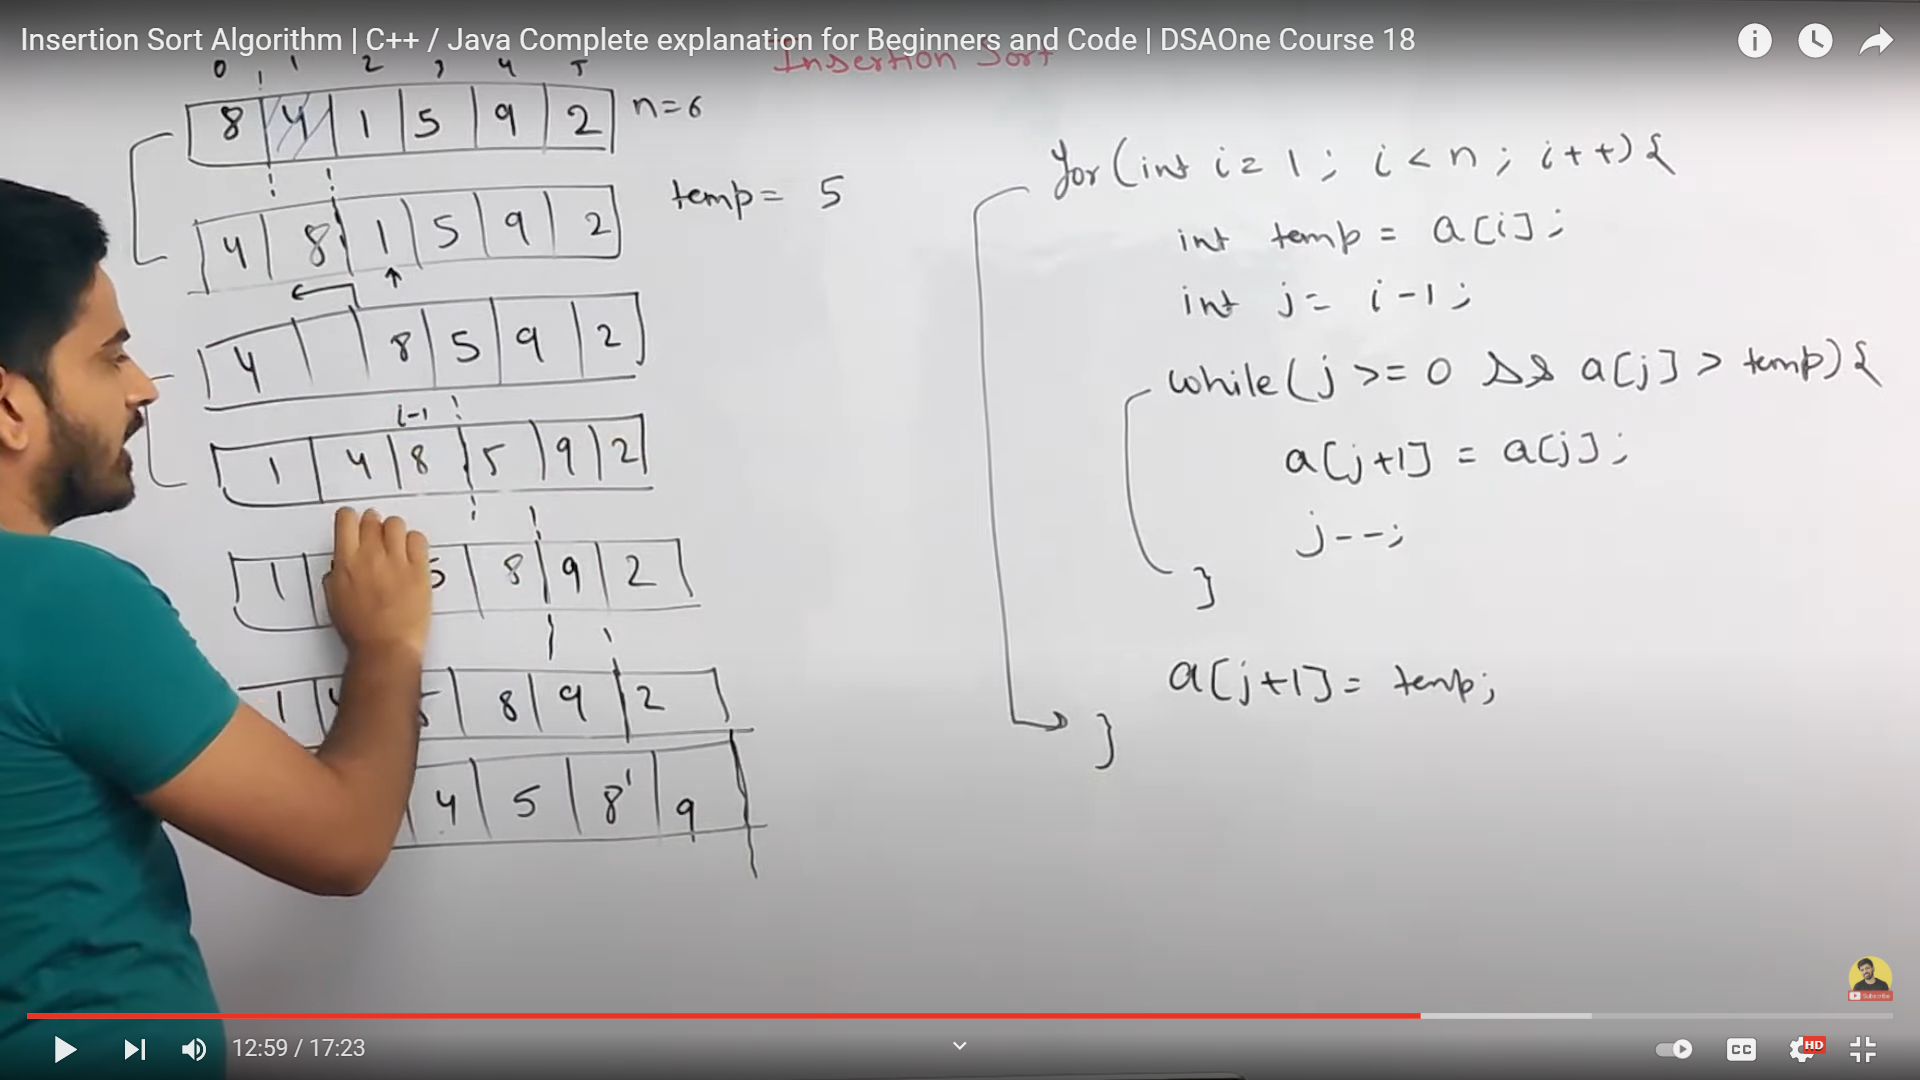 Insertion Sort Algorithm | C++ / Java Complete explanation for Beginners and Code | DSAOne Course 18
Insertion Sort
0 1 2 3 4 5
8 4 1 5 9 2 n=6
temp= 5
4 8 1 5 9 2
4 8 5 9 2
i-1
1 4 8 5 9 2
1 5 8 9 2
1 4 5 8 9 2
4 5 8 9
for(int i=1; i<n; i++){
int temp = a[i];
int j= i-1;
while(j>=0 && a[j]>temp){
a[j+1] = a[j];
j--;
}
a[j+1]= temp;
}
Subscribe
12:59 / 17:23
CC
HD